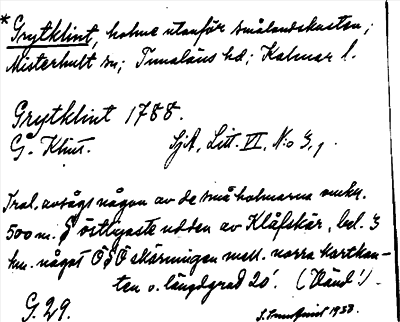 * Grytklint, holme utanför smålandskusten;
Misterhult sn; Tunaläns hd; Kalmar l.
Grytklint 1788.
G. Klint. SjA, Litt. VI, No 3,
Trol. avsågs någon av de små holmarna omkr.
500 m. S östligaste udden av Klåfskär, bel. 3
km. något OSO skärningen mell. norra kartkan-
ten o. längdgrad 20'. (Händ!).
G. 29.